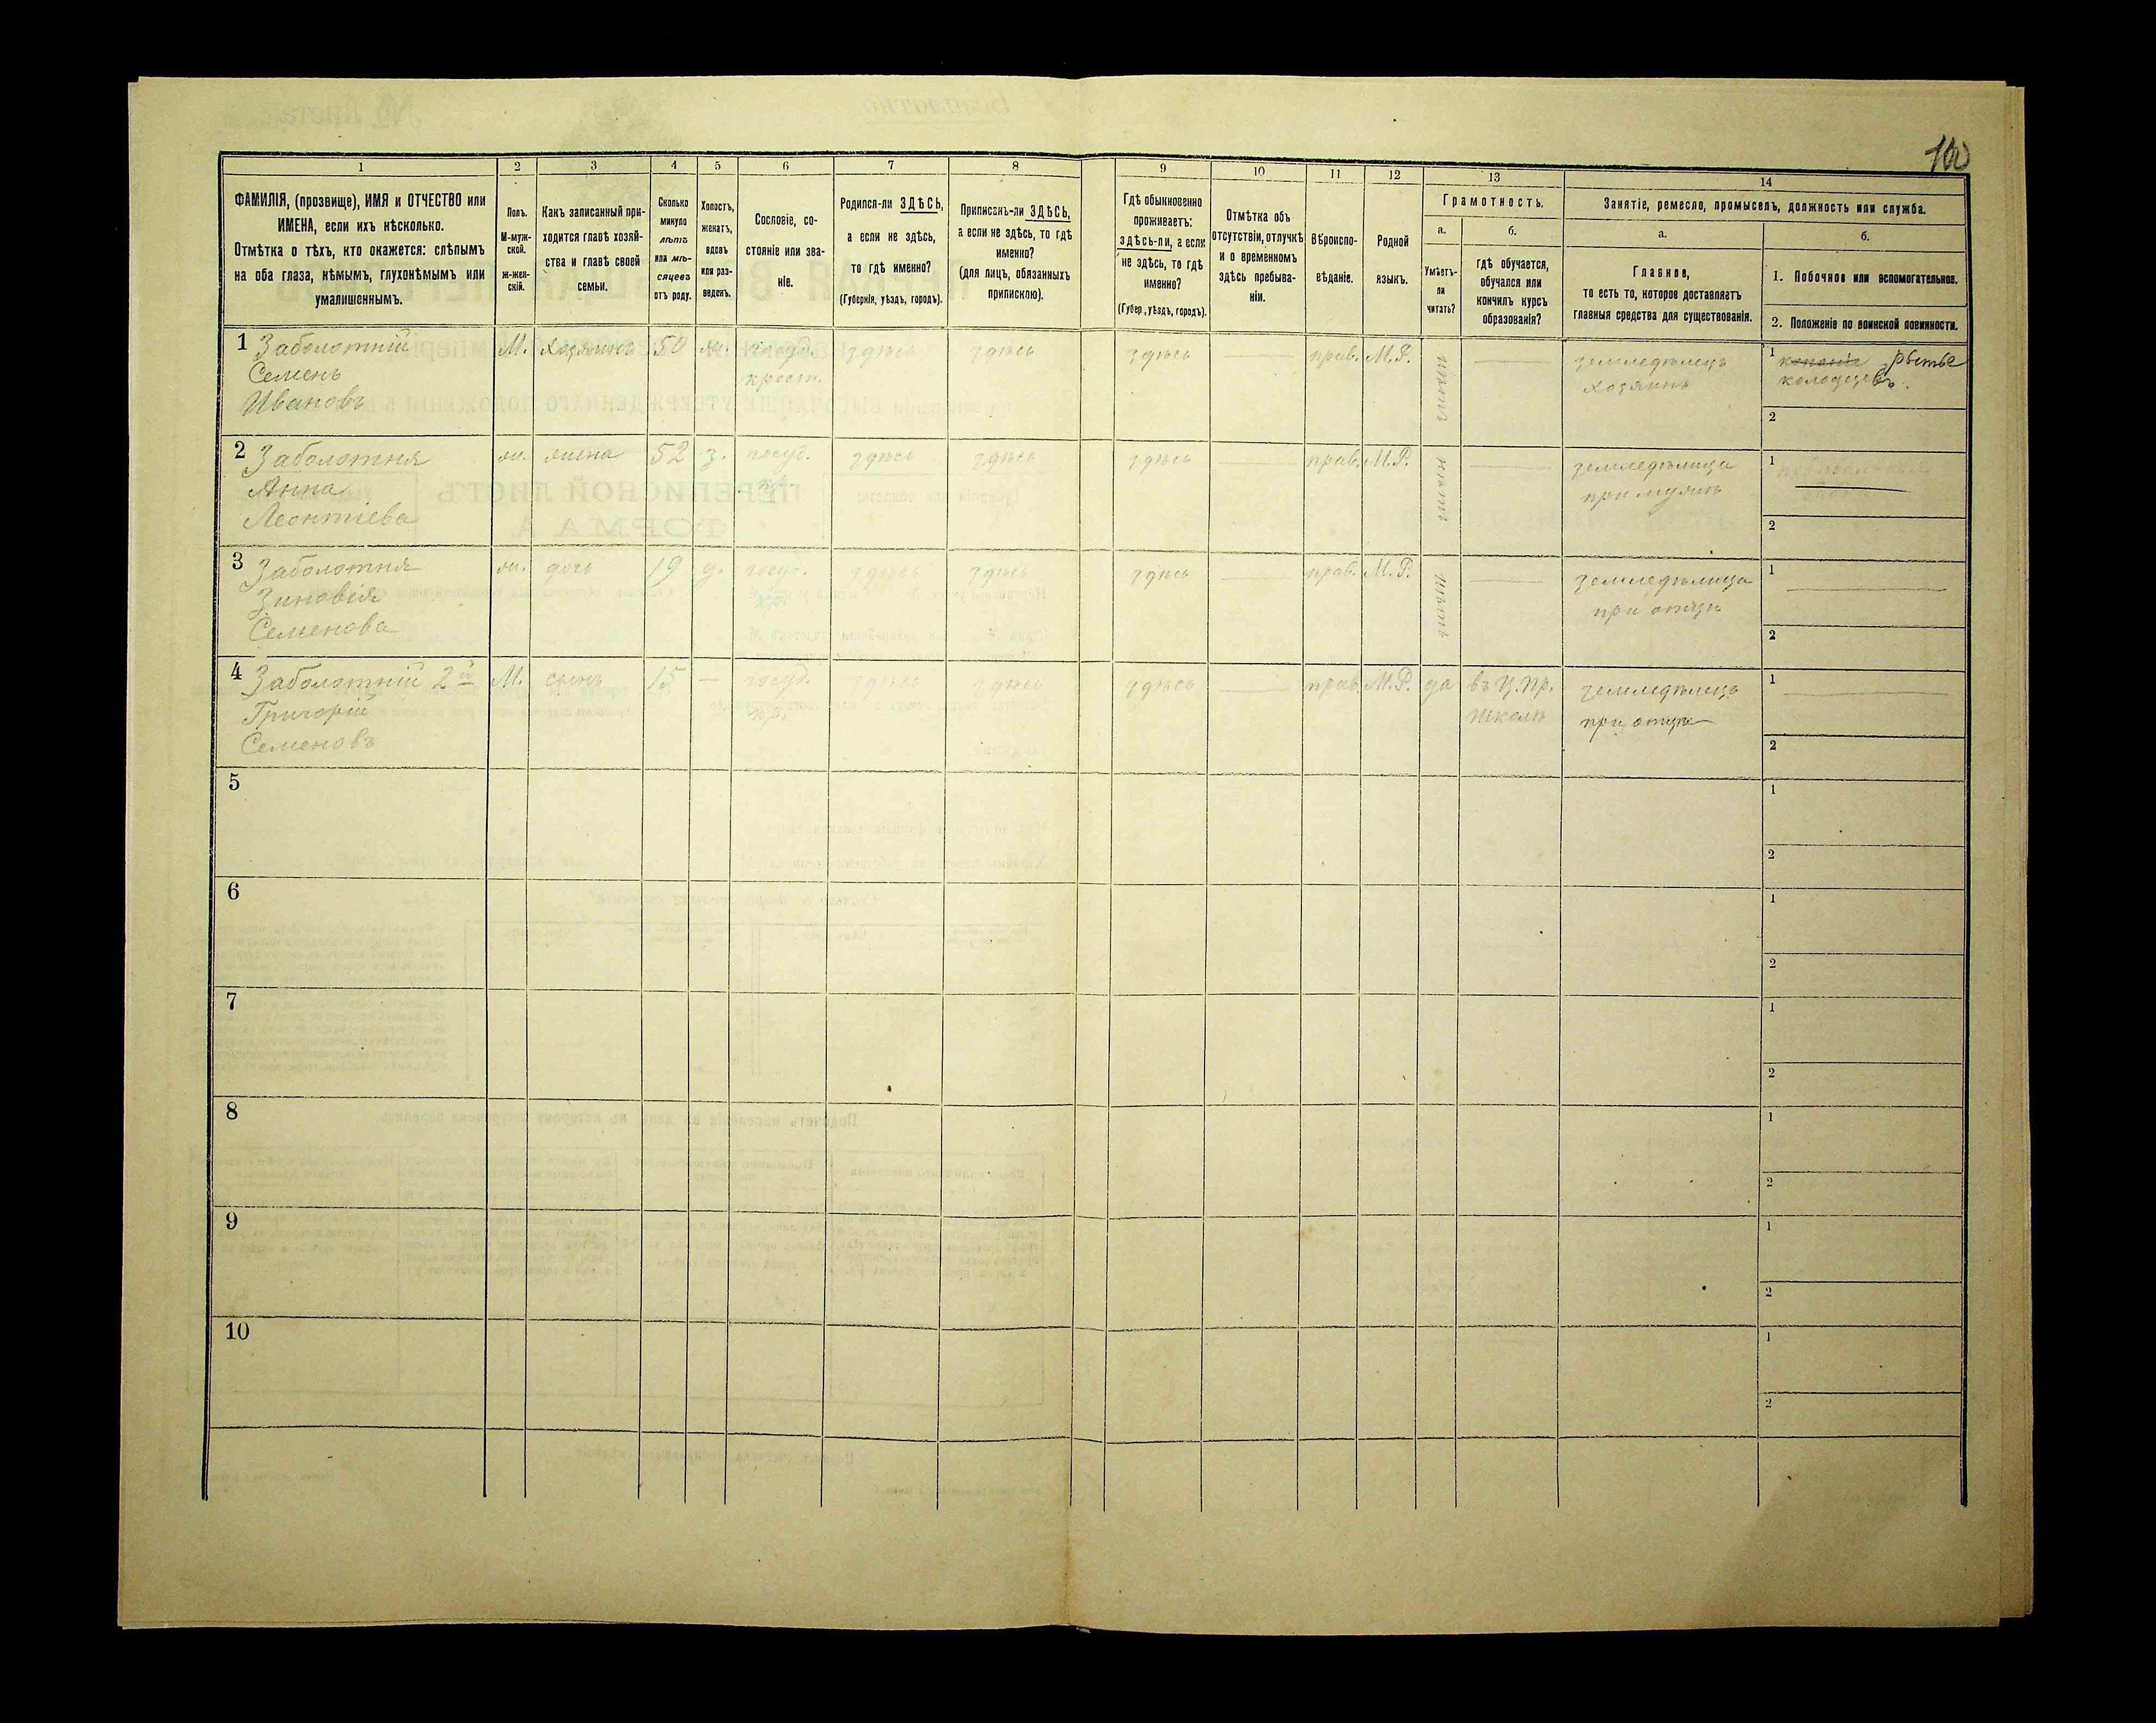 100
1
2
3
4
5
6
7
8
9
10
11
12
13
14
ФАМИЛІЯ, (прозвище), ИМЯ и ОТЧЕСТВО или
ИМЕНА, если ихъ нѣсколько.
Отмѣтка о тѣхъ, кто окажется: слѣпымъ
на оба глаза, нѣмымъ, глухонѣмымъ или
умалишеннымъ.
Полъ.
М-муж-
ской.
ж-жен-
скій.
Какъ записанный при-
ходится главѣ хозяй-
ства и главѣ своей
семьи.
Сколько
минуло
лѣтъ
или мѣ-
сяцевъ
отъ роду.
Холостъ,
женатъ,
вдовъ
или раз-
веденъ.
Сословіе, со-
стояніе или зва-
ніе.
Родился-ли ЗДѢСЬ,
а если не здѣсь,
то гдѣ именно?
(Губернія, уѣздъ, городъ).
Приписанъ-ли ЗДѢСЬ,
а если не здѣсь, то гдѣ
именно?
(для лицъ, обязанныхъ
припискою).
Гдѣ обыкновенно
проживаетъ:
здѣсь-ли, а если
не здѣсь, то гдѣ
именно?
(Губер., уѣздъ, городъ).
Отмѣтка объ
отсутствіи, отлучкѣ
и о временномъ
здѣсь пребыва-
ніи.
Вѣроиспо-
вѣданіе.
Родной
языкъ.
Грамотность.
а.
Умѣетъ-
ли
читать?
б.
гдѣ обучается,
обучался или
кончилъ курсъ
образованія?
Занятіе, ремесло, промыселъ, должность или служба.
а.
Главное,
то есть то, которое доставляетъ
главныя средства для существованія.
б.
1. Побочное или вспомогательное.
2. Положеніе по воинской повинности.
1 Заболотній М. хозяинъ 50 ж. госуд. здѣсь здѣсь здѣсь — прав. М.Р. нѣтъ — земледѣлецъ 1 копаніе рытье
Семенъ крест. хозяинъ колодезевъ.
Ивановъ
2
2 Заболотня ж. жена 52 з. госуд. здѣсь здѣсь здѣсь — прав. М.Р. нѣтъ — земледѣлица 1
Анна кр. при мужѣ —
Леонтіева
2
3 Заболотня ж. дочь 19 д. госуд. здѣсь здѣсь здѣсь — прав. М.Р. нѣтъ — земледѣлица 1 —
Зиновія кр. при отцѣ
Семенова
2
4 Заболотній 2й М. сынъ 15 — госуд. здѣсь здѣсь здѣсь — прав. М.Р. да въ Ц. пр. земледѣлецъ 1 —
Григорій кр. школѣ при отцѣ
Семеновъ
2
5
1
2
6
1
2
7
1
2
8
1
2
9
1
2
10
1
2